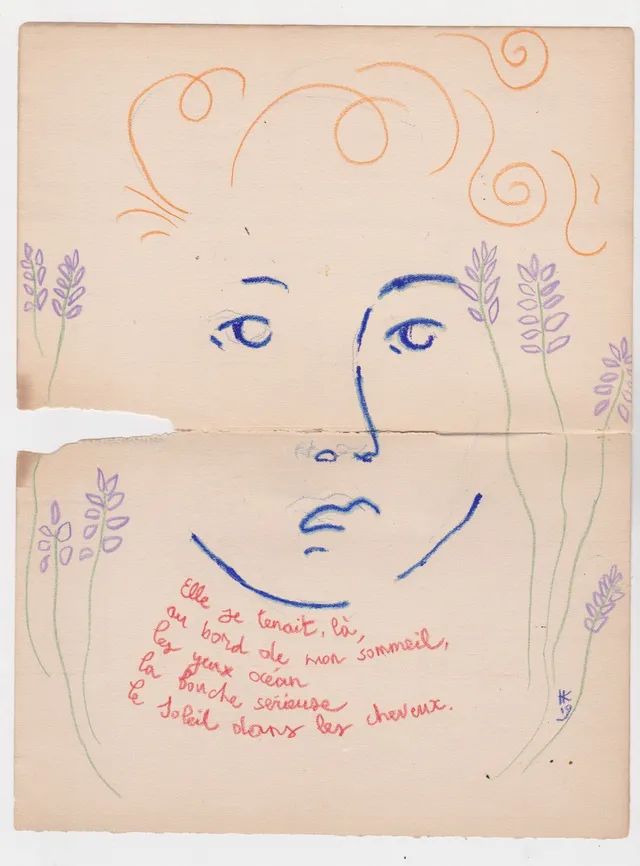 Elle se tenait, là,
au bord de mon sommeil,
les yeux océan
la bouche sérieuse
le Soleil dans les cheveux.